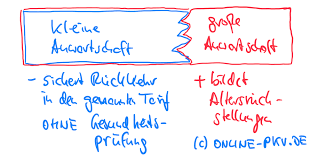 kleine
Anwartschaft
große
Anwartschaft
- sichert Rückkehr
in den genannten Tarif
OHNE Gesundheits-
prüfung
+ bildet
Altersrück-
stellungen
(c) ONLINE-PKV.DE